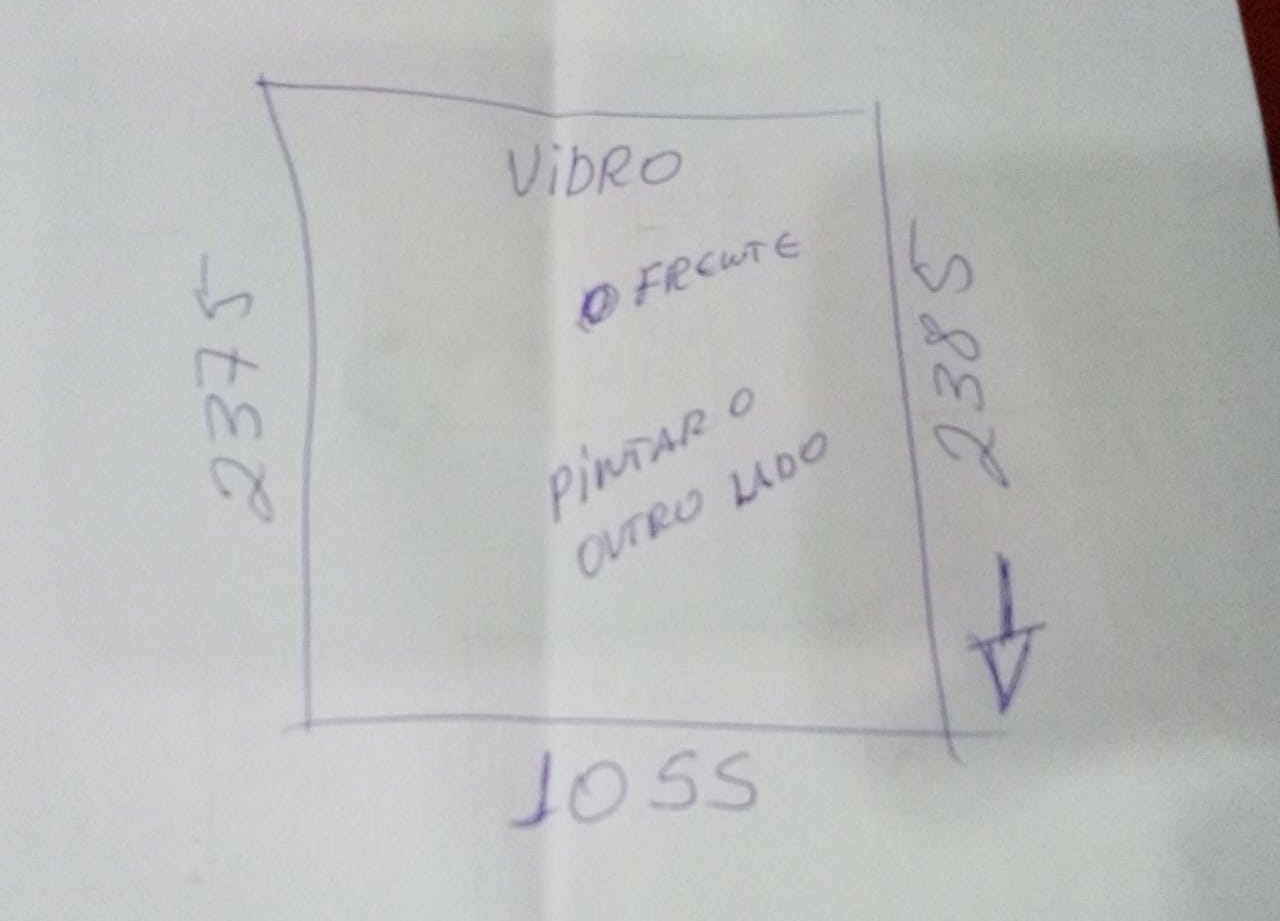 ViDRO
O FRENTE
PiNTAR O
OUTRO LADO
2375
2385
1055